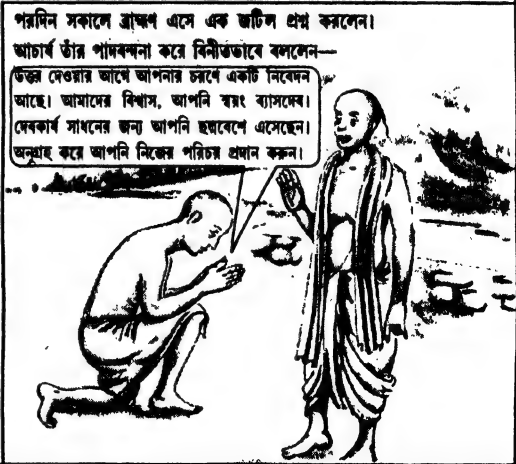 পরদিন সকালে ব্রাহ্মণ এসে এক জটিল প্রশ্ন করলেন।
আচার্য তাঁর পাদবন্দনা করে বিনীতভাবে বললেন—
উত্তর দেওয়ার আগে আপনার চরণে একটি নিবেদন
আছে। আমাদের বিশ্বাস, আপনি স্বয়ং ব্যাসদেব।
দেবকার্য সাধনের জন্য আপনি ছদ্মবেশে এসেছেন।
অনুগ্রহ করে আপনি নিজের পরিচয় প্রদান করুন।